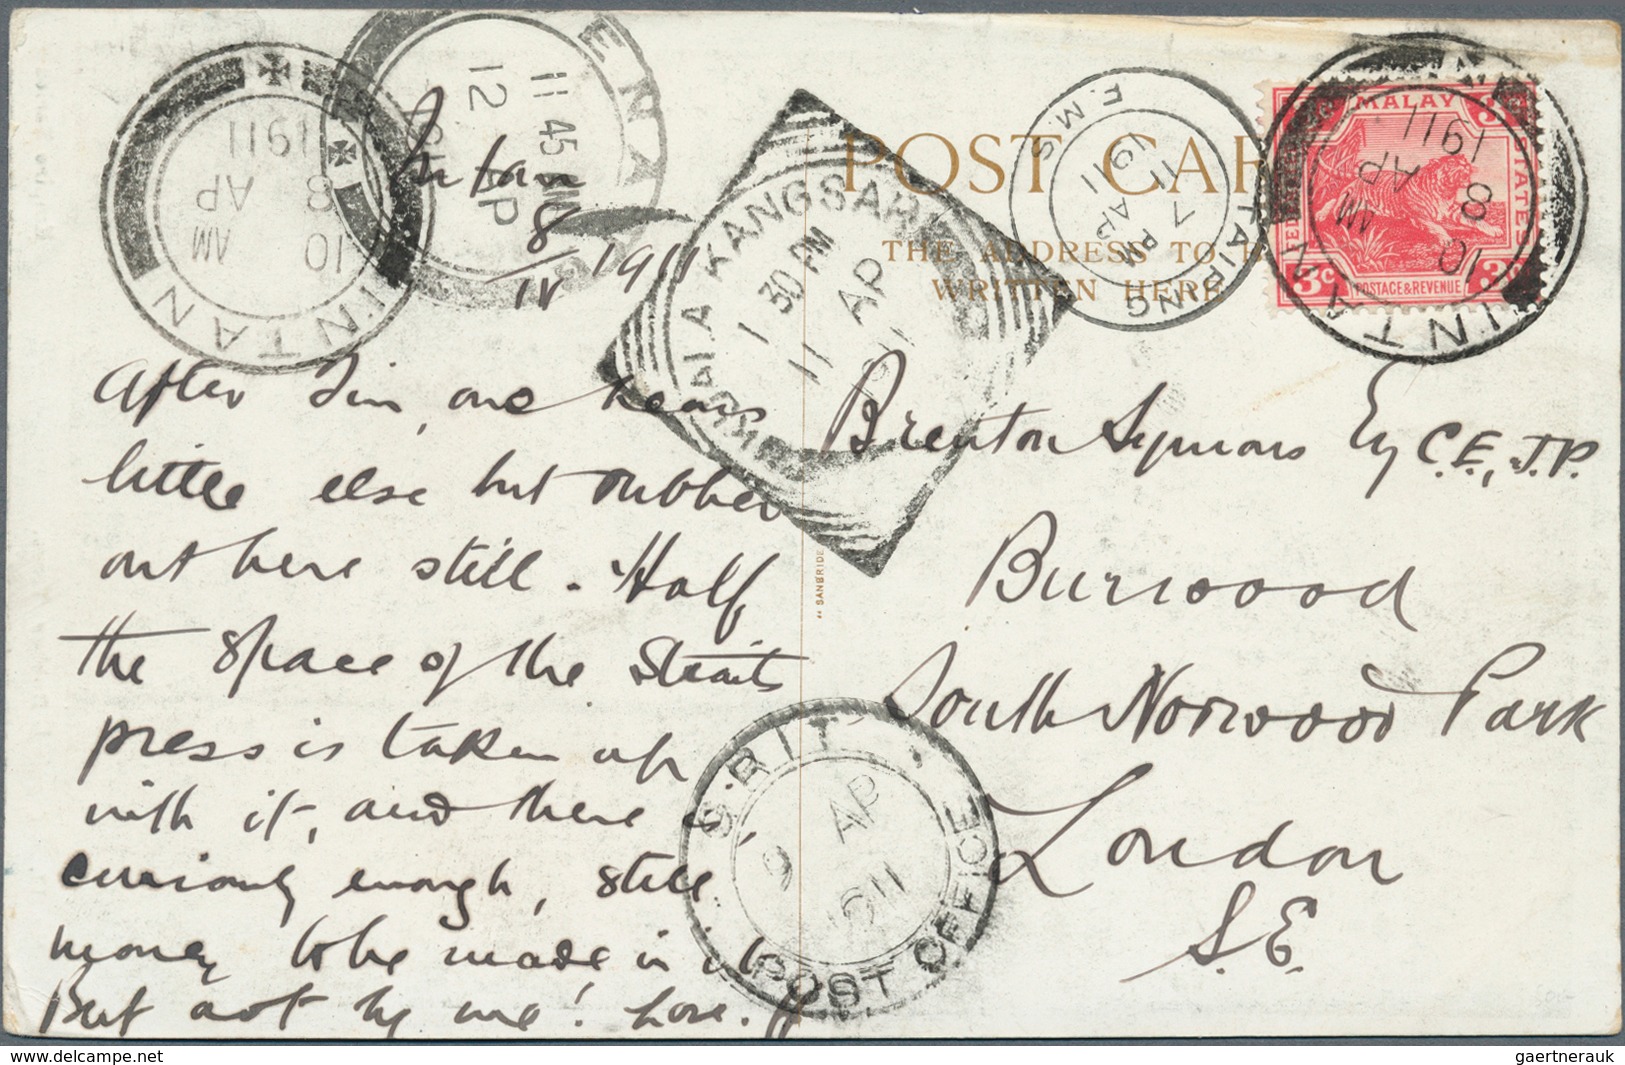 INTAN
10 AM
8 AP
1911
ENA
11 45 AM
12 AP
KUALA KANGSAR
1 30 PM
11 AP
11
TAIPING
F.M.S.
7 PM
11 AP
1911
INTAN
10 AM
8 AP
1911
MALAY STATES
3c 3c
POSTAGE & REVENUE
POST CAR
THE ADDRESS TO B
WRITTEN HERE
Intan
8/IV 1911
After Tin, one hears
little else but rubber
out here still. Half
the space of the Straits
press is taken up
with it, and there is,
curiously enough, still
money to be made in it.
But not by me! Love.
"SANBRIDE
Brenton Symons Esq C.E., J.P.
Burwood
South Norwood Park
London
S.E.
S. BRIT
9 AP
1911
POST OFFICE
www.delcampe.net
gaertnerauk